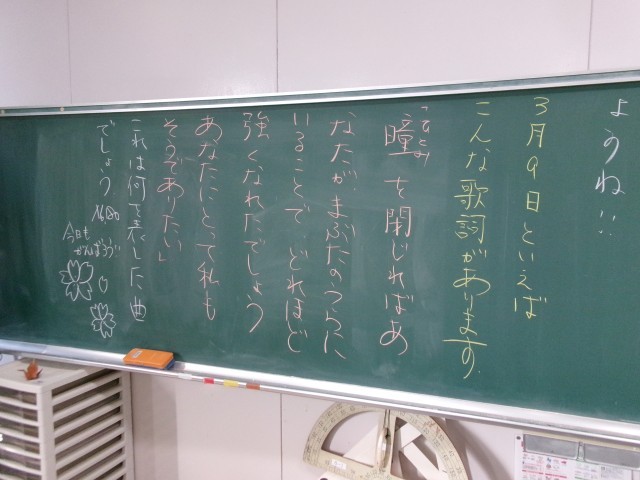 ようね!!
3月9日といえば
こんな歌詞があります。
「瞳を閉じればあ
ひとみ
なたがまぶたのうらに
いることで、どれほど
強くなれたでしょう
あなたにとって私も
そうでありたい」
これは何を表した曲
でしょう
今日も
がんばろう!!